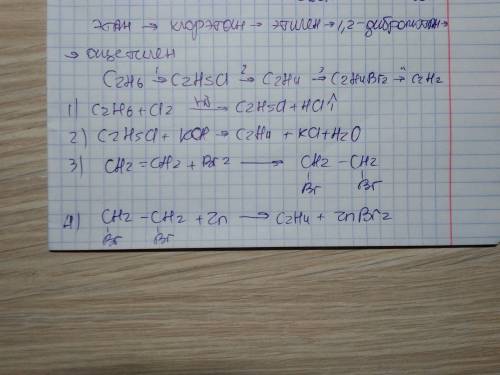 этан → хлорэтан → этилен → 1,2-дибромэтан →
→ ацетилен
C2H6 1→ C2H5Cl 2→ C2H4 3→ C2H4Br2 4→ C2H2
1) C2H6 + Cl2 hν→ C2H5Cl + HCl↑
2) C2H5Cl + KOH → C2H4 + KCl + H2O
3) CH2 = CH2 + Br2 → CH2 – CH2
Br Br
4) CH2 – CH2 + Zn → C2H4 + ZnBr2
Br Br